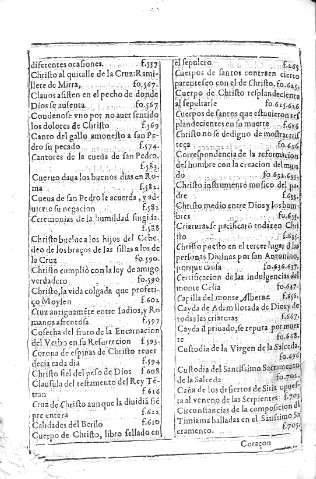 diferentes ocasiones. f.557
Christo al quitalle de la Cruz: Rami-
llete de Mirra, fo.567.
Clauos asisten en el pecho de donde
Dios se ausenta fo.567
Condenose vno por no auer sentido
los dolores de Christo f.569
Canto del gallo amonesto a san Pe-
dro su pecado f.574.
Cantores de la cueua de san Pedro.
f.582.
Cueruo daua los buenos dias en Ro-
ma f.582.
Cueua de san Pedro le acuerda, y ad-
uierte su negacion f.582
Ceremonias de la humildad fingida.
f.588
Christo buelue a los hijos del Zebe-
deo de los braços de las sillas a los de
la Cruz fo.590.
Christo cumplió con la ley de amigo
verdadero fo.590
Christo, la vida colgada que profeti-
çò Moysen f.602
Cruz antiguamẽte entre Iudios, y Ro
manos afrentosa f.597
Cosecha del fruto de la Encarnacion
del Verbo en su Resureccion f.593.
Corona de espinas de Christo reuer
decia cada dia f.594
Christo fiel del peso de Dios f.608
Clausula del testamento del Rey Te-
tran f.616
Cruz de Christo aunque la diuidiā siẽ
pre entera f.622
Calidades del Berilo f.610
Cuerpo de Christo, libro sellado en
el sepulcro f.269
Cuerpos de santos contraen cierto
parentesco con el de Christo. fo.625.
Cuerpo de Christo resplandeciente
al sepultarle fo.625.626
Cuerpos de santos que estuuieron res
plandecientes en su muerte
Christo no se dedigno de mostrar
fo.626
Correspondencia de la reformacion
del hombre con la creacion del mun-
do fo.632.633.
Christo instrumento musico del pa-
dre f.635.
Christo medio entre Dios y los hom
bres fo.635.
Criaturas se pacificarō todas en Chris
to. f.635.
Christo puesto en el tercer lugar d las
personas Diuinas por san Antonino,
porque causa fo.636.637.
Certificacion de las indulgencias del
monte Celia fo.637
Capilla del monte Alberne f.651.
Cayda de Adam llorada de Dios y de
todas las criaturas f.667.
Cayda d priuado, se reputa por muer
te fo.668.
Custodia de la Virgen de la Salzeda.
fo.696
Custodia del Santissimo Sacramento
de la Salceda fo.702.
Caña de los desiertos de Siria opues-
ta al veneno de las Serpientes f.703
Circunstancias de la composicion del
Timiama halladas en el Santissimo Sa
cramento. f.705.
Coraçon